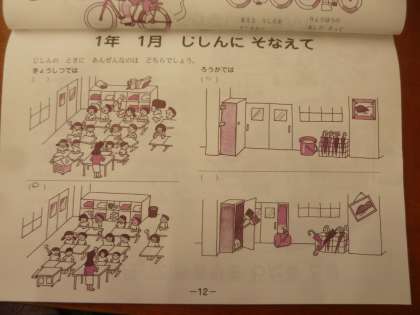 1年 1月 じしんに そなえて
じしんの ときに あんぜんなのは どちらでしょう。
きょうしつでは
ろうかでは
—12—